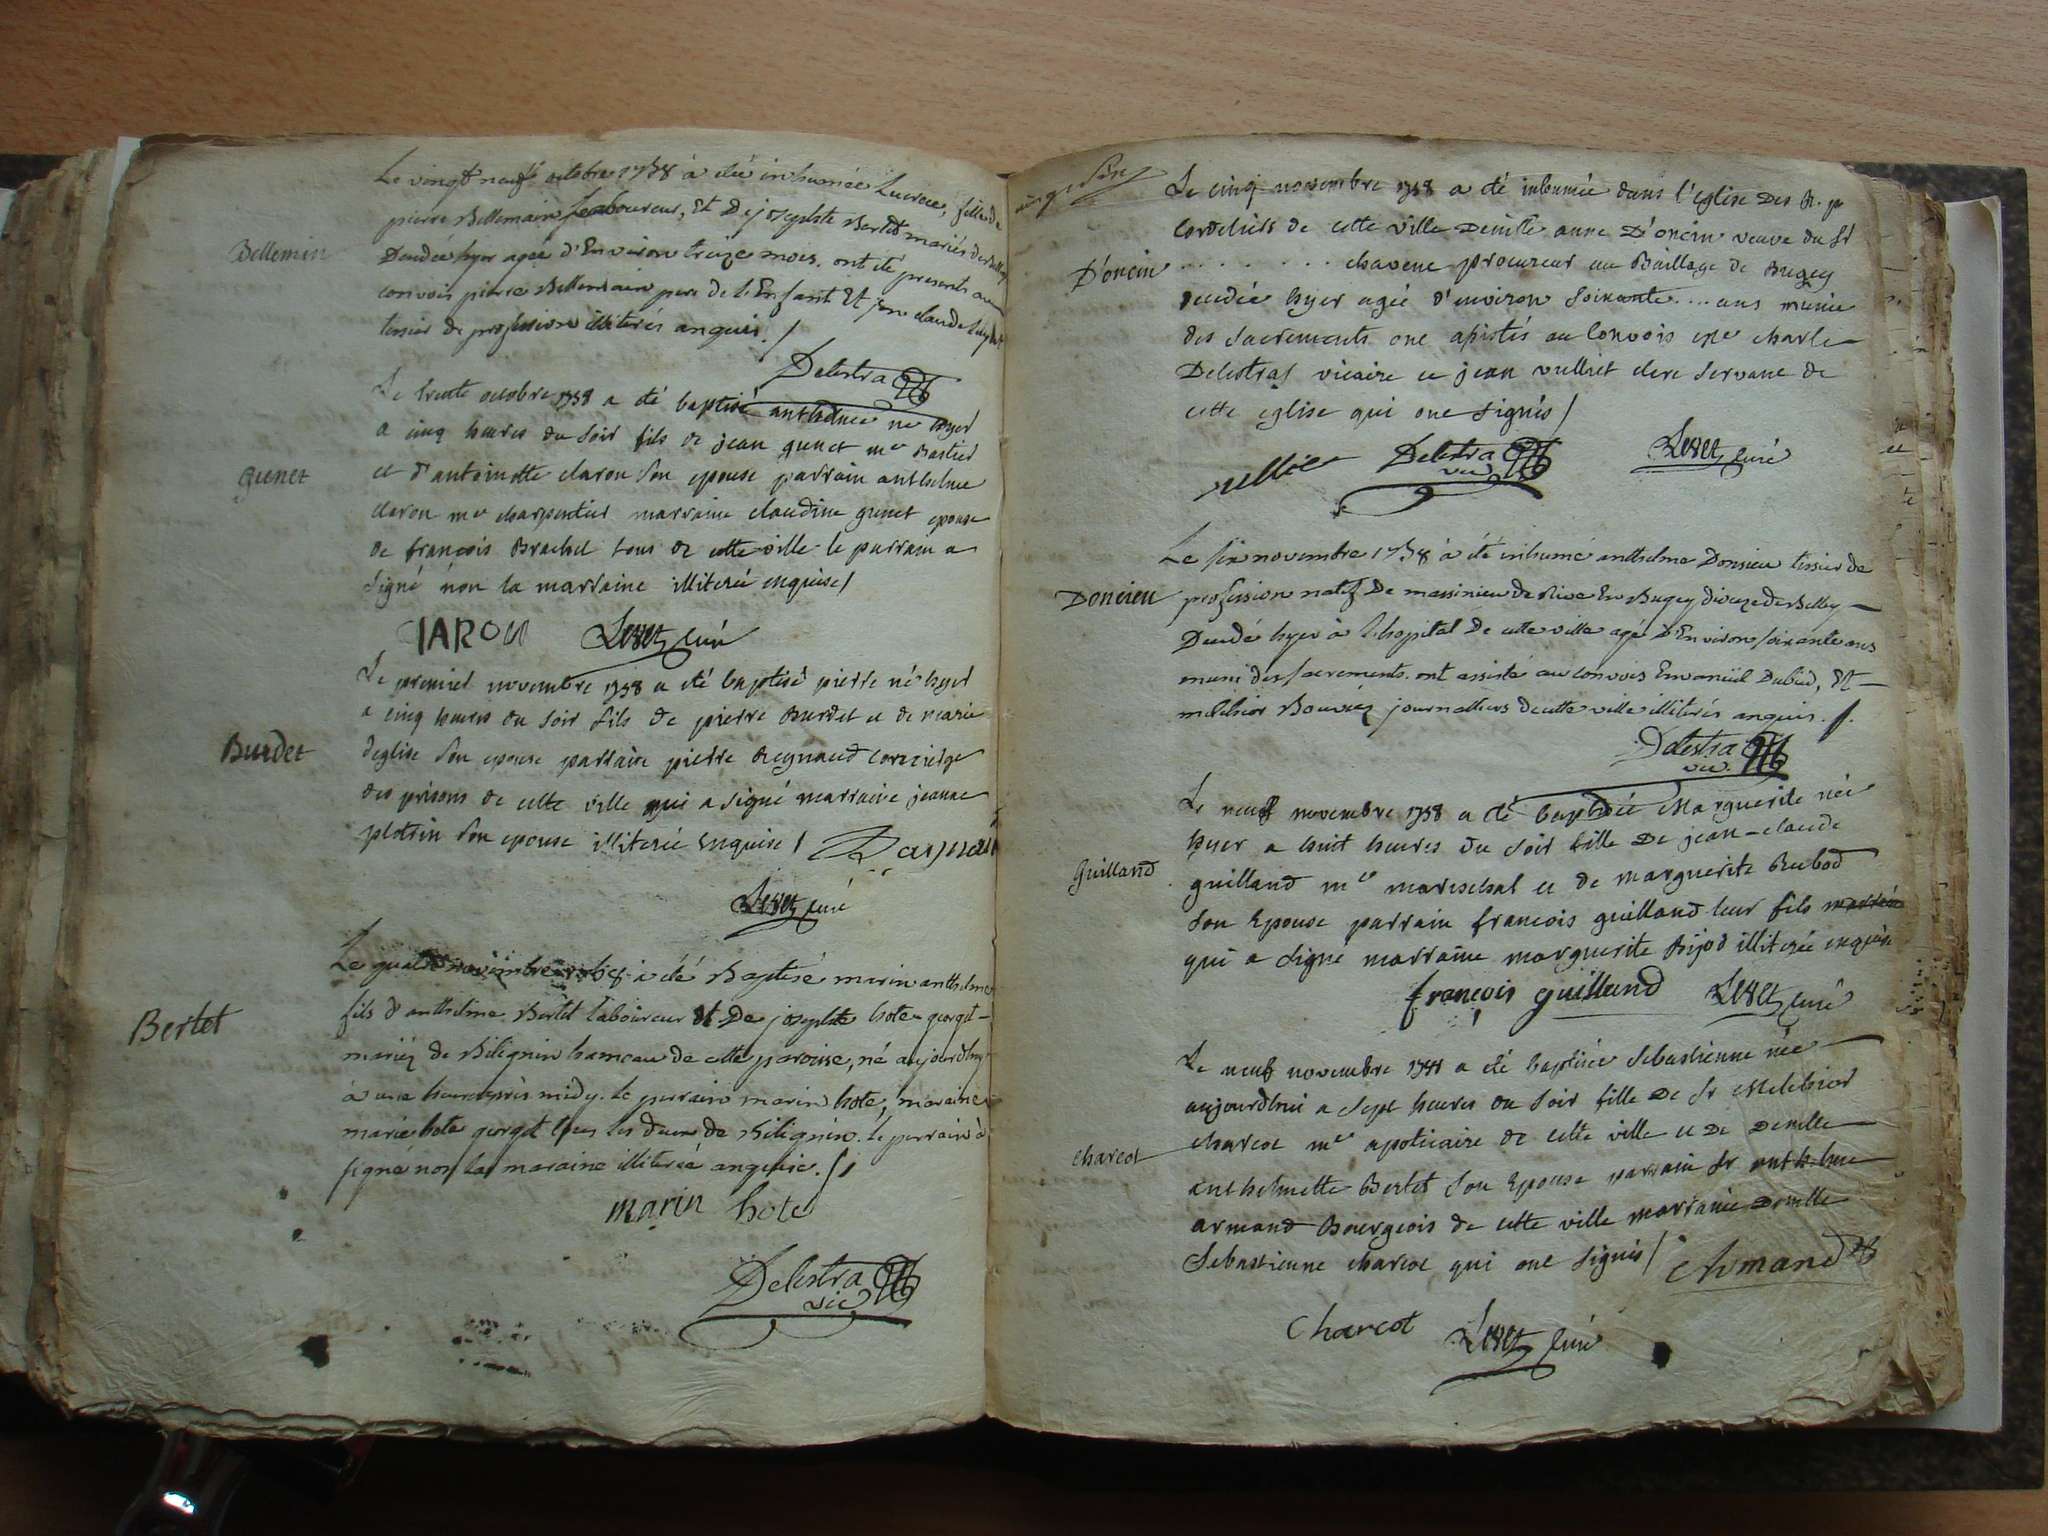 Le vingt neuf octobre 1738 à été inhumée Lucrece, fille de
pierre Bellemain laboureur, Et De josephte Bertet mariés de
Bellemin
Decedée hyer agée d'Environ treize mois. ont été presents au
convois pierre Bellemain pere de l'Enfant Et jean claude
tessier de profession illiterés anquis. /
Delestra
Le trente octobre 1738 a été baptisé anthelme né hyer
a cinq heures du soir fils de jean gunet me
gunet
et d'antoinette claron son epouse parrain anthelme
claron me charpentier marraine claudine gunet epouse
de françois Brachet tous de cette ville le parrain a
signé non la marraine illiterée enquise /
CLARON Levet curé
Le premier novembre 1738 a été baptisé pierre né hyer
a cinq heures du soir fils de pierre Burdet et de marie
Burdet
deglise son epouse parrain pierre Reynaud concierge
des prisons de cette ville qui a signé marraine jeanne
plottin son epouse illiterée enquise /
Levet curé
Le quatre novembre 1738 à été Baptisé marin anthelme
fils d'anthelme Bertet laboureur Et De josephte hote gorget
Bertet
mariéz de Bilignin hameau de cette paroisse, né aujourdhuy
à une heure après midy. le parrain marin hote, maraine
marie hote gorget tous les deux de Bilignin. le parrain à
signé non la maraine illiterée anquise. /
marin hote
Delestra
vic
Le cinq novembre 1738 a été inhumée dans l'eglise Des R. p
Cordeliers de cette ville Demlle anne D'oncin veuve du Sr
D'oncin
........ chavene procureur au Baillage de Bugey
decedée hyer agée d'environ soixante .... ans munie
des sacrements ont assistés au Convois Mre charle
Delestraz vicaire et jean vulliet clerc servant de
cette eglise qui ont signés /
vulliet Delestra
vic
Levet curé
Le six novembre 1738 à été inhumé anthelme Donsieu tissier de
Doncieu
profession natif De massinieu de Rive En Bugey dioceze de Belley
Decedé hyer à l'hopital de cette ville agé D'Environ soixante ans
muni des sacrements. ont assisté au convois Emanüel Dubied, Et
melchior Bouvier journalliers de cette ville illiterés anquis. /.
Delestra
vic.
Le neuf novembre 1738 a été baptisée Marguerite née
hyer a huit heures du soir fille De jean-claude
Guilland
guilland me mareschal et de marguerite Rubod
son Epouse parrain françois guilland leur fils
qui a signé marraine marguerite Bijod illiterée enquise
françois guilland Levet curé
Le neuf novembre 1738 a été baptisée Sebastienne née
aujourdhui a sept heures du soir fille De Sr Melchior
charcot
charcot me apoticaire de cette ville et De Demlle
anthelmette Bertet son Epouse parrain Sr anthelme
armand Bourgeois de cette ville marraine Demlle
Sebastienne charcot qui ont signés /
Armand
Charcot Levet curé